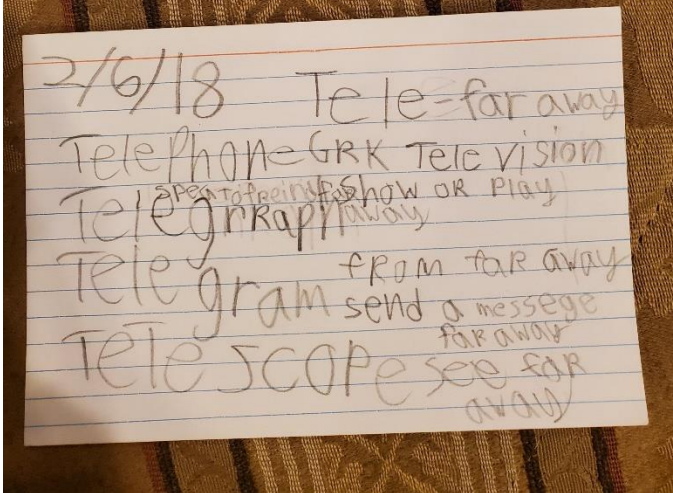 2/6/18 Tele-far away
Telephone GRK Television
show or play
Telegrraph away
from far away
Telegram send a messege
far away
Telescope see far
away